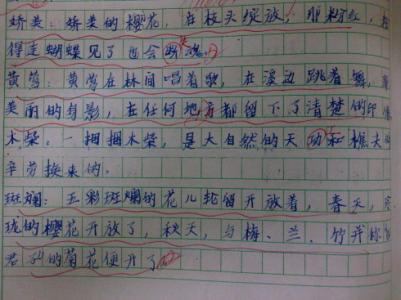 娇美：娇美的樱花，在枝头绽放，那粉红，
得连蝴蝶见了也会断魂。
黄莺：黄莺在林间唱着歌，在溪边跳着舞，
美丽的身影，在任何地方都留下了清楚的印
木柴：一捆捆木柴，是大自然的天功和樵夫的
辛劳换来的。
斑斓：五彩斑斓的花儿轮留开放着，春天，
珑的樱花开放了，秋天，与梅、兰、竹并称
君子的菊花便开了。